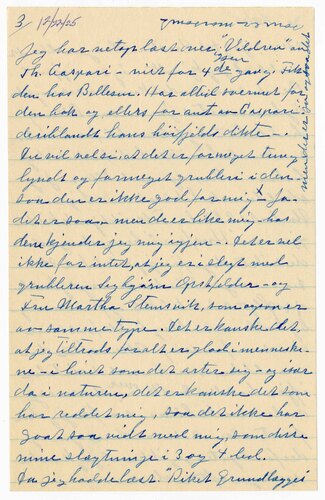 3 12/22/25
Jeg har netop læst med "Vildren" av
Th. Caspari - vist for 4de gang, Fik
den hos Bellesen. Har altid sværmet for
den bok og ellers for aut av Caspari
deriblandt hans høifjelds dikte -.
Du vil vel si, at det er for meget tung
lyndt og for meget grubleri i den
saa den er ikke god for mig x - Ja -
det er saa - men de er like mig - has
dem kjender jeg mig igjen -. Det er vel
ikke for intet, at jeg er i slegt med
grubleren Sigbjørn Obstfelder - og
Fru Martha Stensvik, som ogsaa er
av samme type. Det er kanske det,
at jeg tiltrods for alt er glad i menneske
ne - i livet som det arter sig - og især
da i naturen, det er kanske det som
har reddet mig, saa det ikke har
gaat saa vidt med mig, som disse
mine slægtninge i 3 og 4 led.
Da jeg hadde læst. Riket Grundlægges